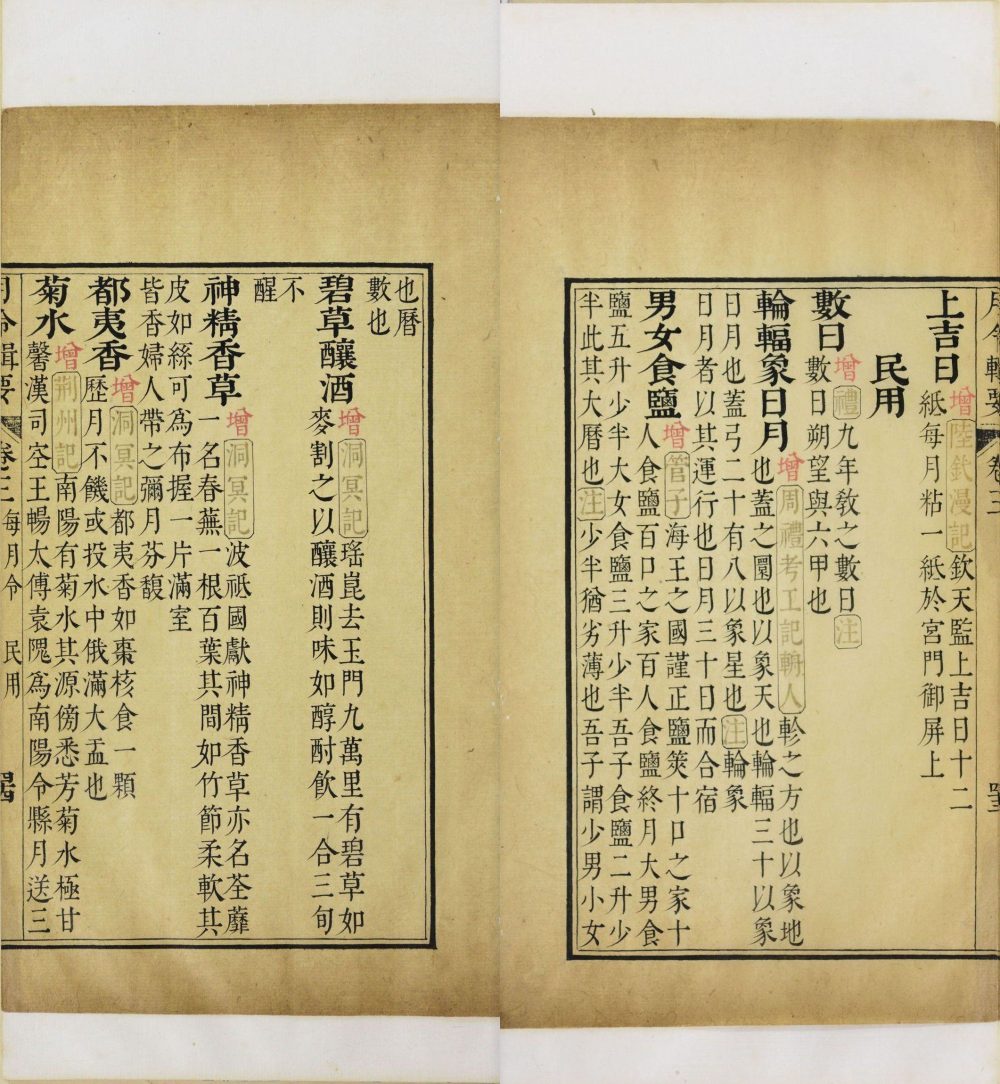 月令輯要 卷三
上吉日 增 陸欽漫記 欽天監上吉日十二
紙每月粘一紙於宮門御屏上
民用
數日 增 禮 九年敎之數日 注
數日朔望與六甲也
輪輻象日月 增 周禮考工記輈人 軫之方也以象地
也蓋之圜也以象天也輪輻三十以象
日月也蓋弓二十有八以象星也 注 輪象
日月者以其運行也日月三十日而合宿
男女食鹽 增 管子 海王之國謹正鹽筴十口之家十
人食鹽百口之家百人食鹽終月大男食
鹽五升少半大女食鹽三升少半吾子食鹽二升少
半此其大曆也 注 少半猶劣薄也吾子謂少男小女
也曆
數也
碧草釀酒 增 洞冥記 瑤崑去玉門九萬里有碧草如
麥割之以釀酒則味如醇酎飲一合三旬
不
醒
神精香草 增 洞冥記 波祇國獻神精香草亦名荃蘼
一名春蕪一根百葉其間如竹節柔軟其
皮如絲可爲布握一片滿室
皆香婦人帶之彌月芬馥
都夷香 增 洞冥記 都夷香如棗核食一顆
歷月不饑或投水中俄滿大盂也
菊水 增 荆州記 南陽有菊水其源傍悉芳菊水極甘
馨漢司空王暢太傅袁隗爲南陽令縣月送三
月令輯要 卷三 每月令 民用